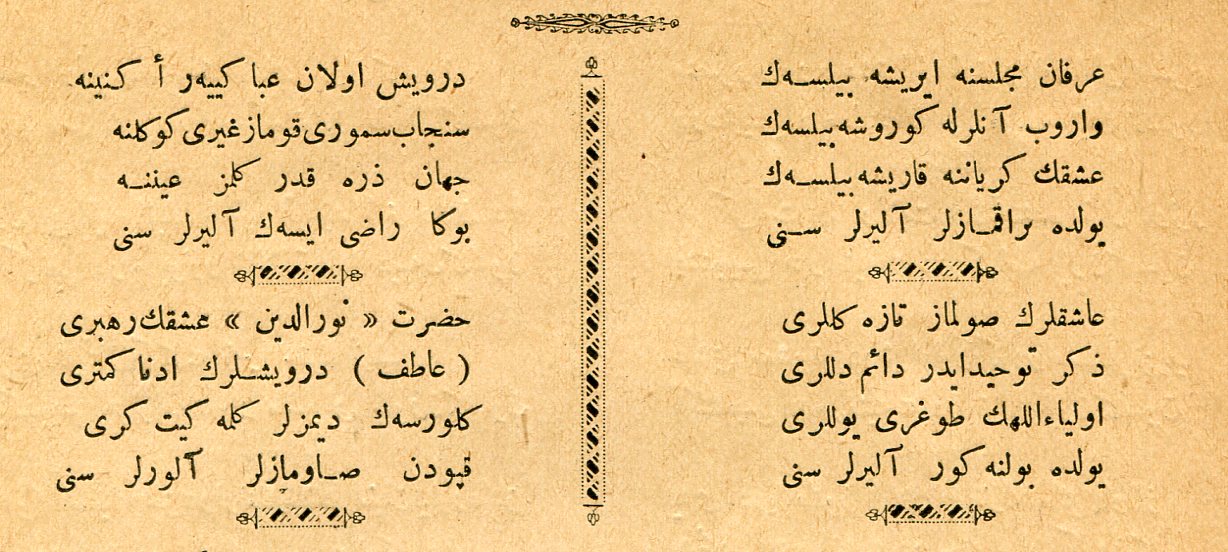 عرفان مجلسنه ایریشه بیلسه‌ك
واروب آنلرله كوروشه بیلسه‌ك
عشقك كریاننه قاریشه بیلسه‌ك
یولده براقمازلر آلیرلر سنی
عاشقلرك صولماز تازه كللری
ذكر توحیدایدر دائم دللری
اولیاءاللهك طوغری یوللری
یولده بولنه كور آلیرلر سنی
درویش اولان عبا كییه‌ر أ كنینه
سنجاب سموری قوماز غیری كوكلنه
جهان ذره قدر كلمز عیننه
بوكا راضی ایسه‌ك آلیرلر سنی
حضرت « نورالدین » عشقك رهبری
( عاطف ) درویشلرك ادنا كمتری
كلورسه‌ك دیمزلر كله كیت كری
قپودن صاومازلر آلورلر سنی